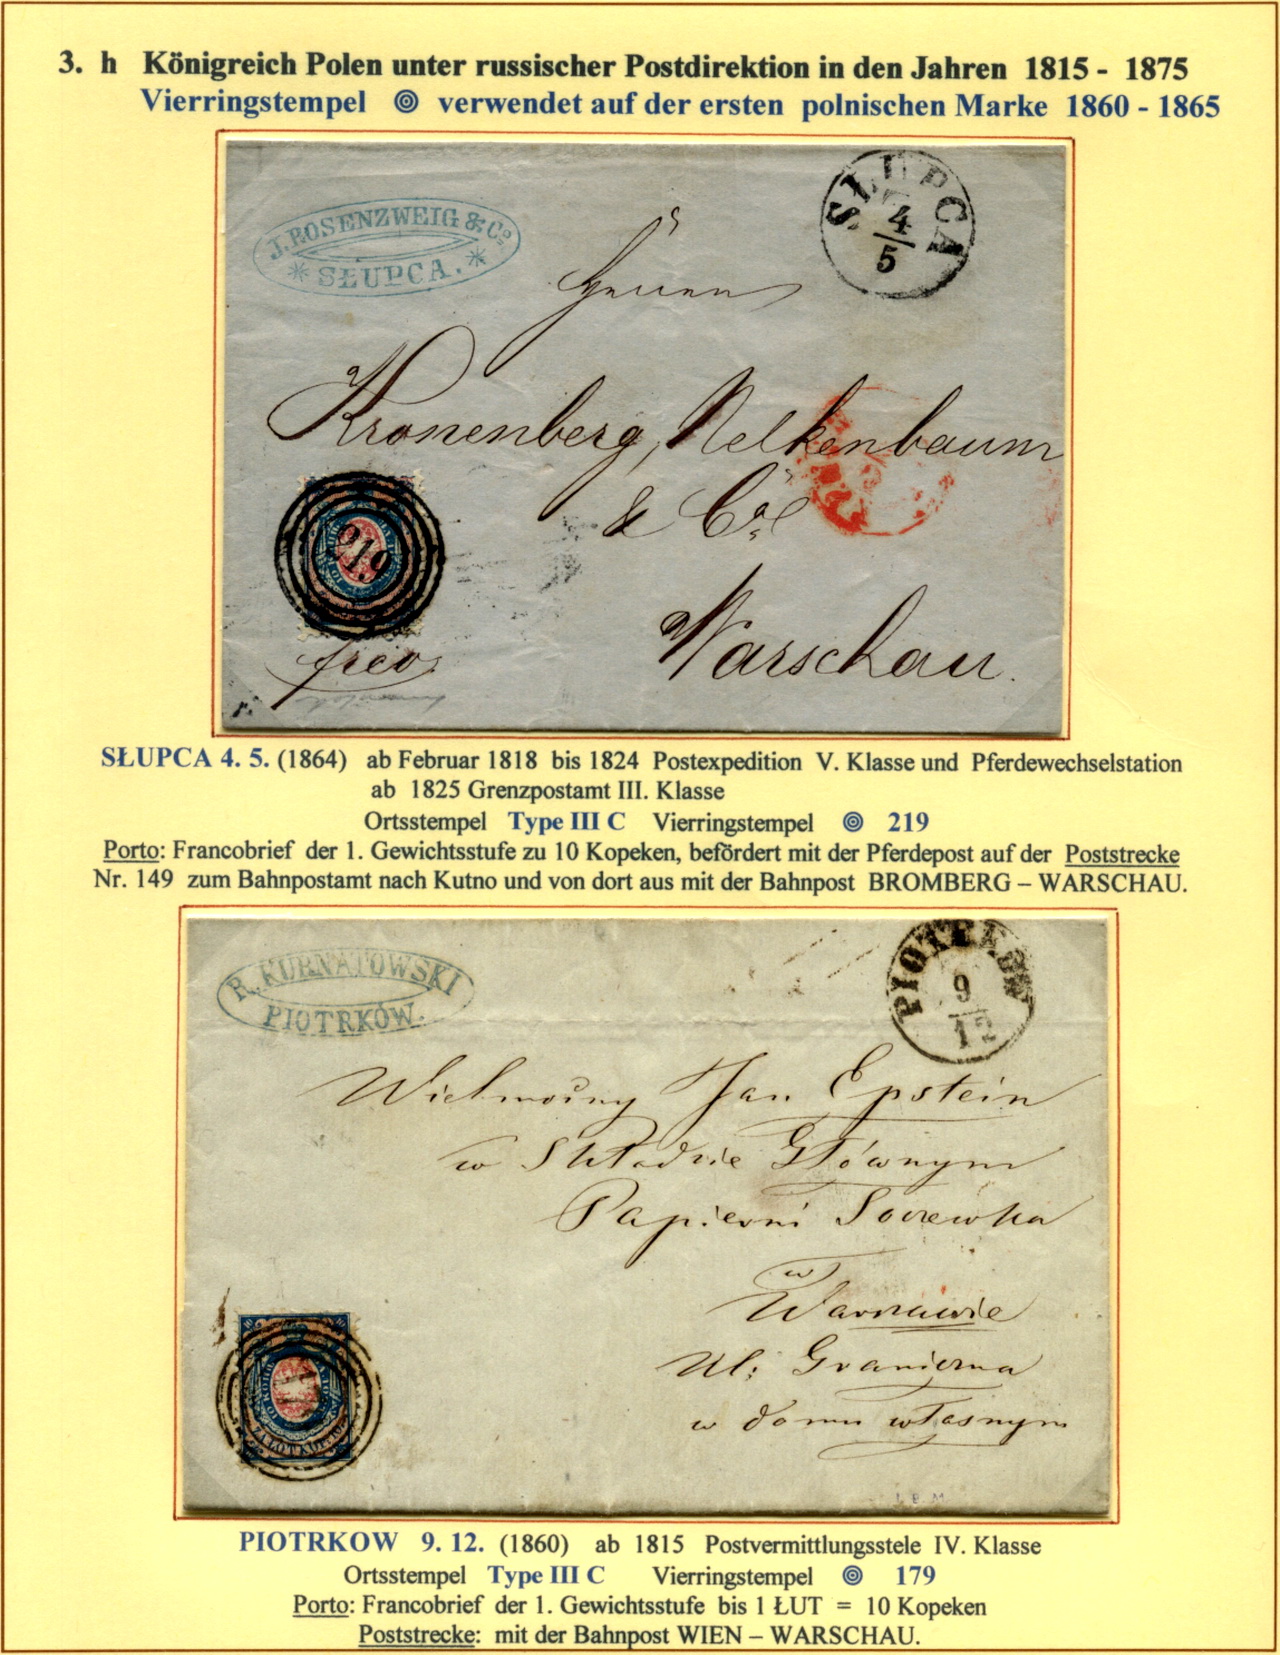 3. h Königreich Polen unter russischer Postdirektion in den Jahren 1815 - 1875
Vierringstempel verwendet auf der ersten polnischen Marke 1860 - 1865
J. ROSENZWEIG & Co.
* SŁUPCA. *
SLUPCA
4
5
Herren
Kronenberg, Nelkenbaum
& Co
219
Warschau.
franco
SŁUPCA 4. 5. (1864) ab Februar 1818 bis 1824 Postexpedition V. Klasse und Pferdewechselstation
ab 1825 Grenzpostamt III. Klasse
Ortsstempel Type III C Vierringstempel 219
Porto: Francobrief der 1. Gewichtsstufe zu 10 Kopeken, befördert mit der Pferdepost auf der Poststrecke
Nr. 149 zum Bahnpostamt nach Kutno und von dort aus mit der Bahnpost BROMBERG – WARSCHAU.
R. KURNATOWSKI
PIOTRKÓW.
PIOTRKOW
9
12
Wielmożny Jan Epstein
w Składzie Głównym
Papierni Soczewka
w
Warszawie
Ul: Graniczna
w domu własnym
ZA ŁOT KOP. 10
PIOTRKOW 9. 12. (1860) ab 1815 Postvermittlungsstele IV. Klasse
Ortsstempel Type III C Vierringstempel 179
Porto: Francobrief der 1. Gewichtsstufe bis 1 ŁUT = 10 Kopeken
Poststrecke: mit der Bahnpost WIEN – WARSCHAU.